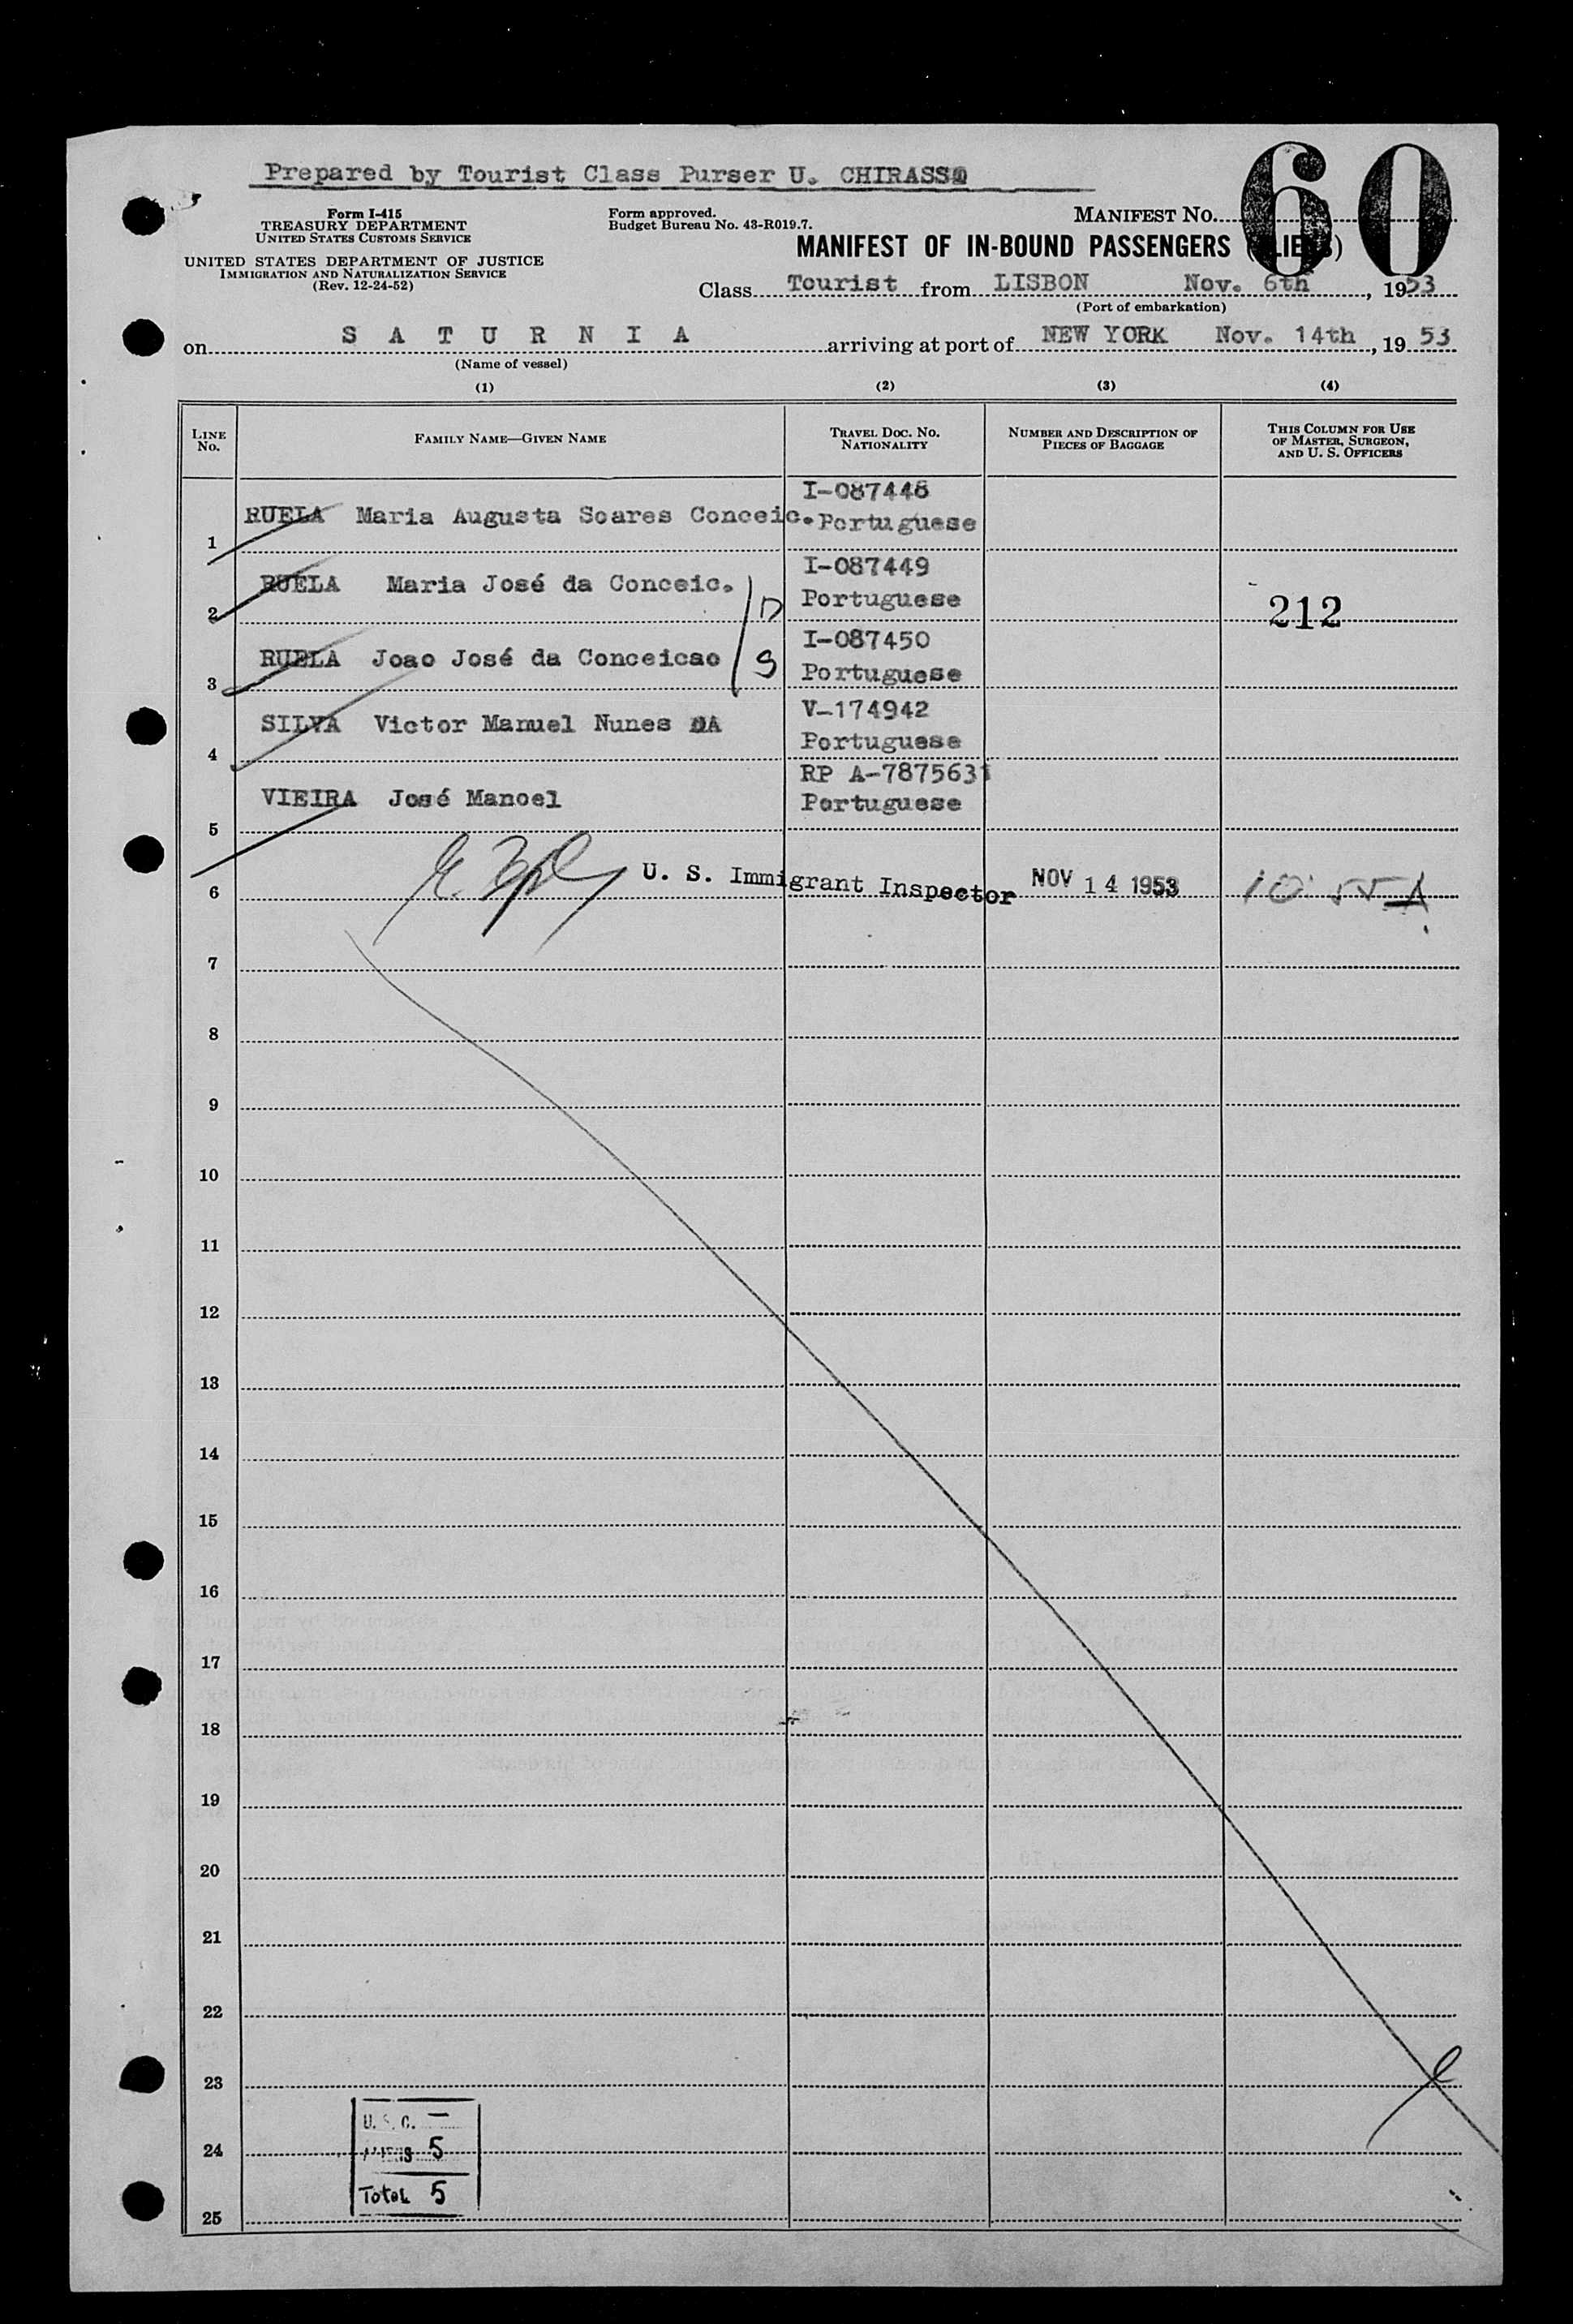 Prepared by Tourist Class Purser U. CHIRASSO
60
Form I-415
TREASURY DEPARTMENT
UNITED STATES CUSTOMS SERVICE
UNITED STATES DEPARTMENT OF JUSTICE
IMMIGRATION AND NATURALIZATION SERVICE
(Rev. 12-24-52)
Form approved.
Budget Bureau No. 43-R019.7.
MANIFEST NO.
MANIFEST OF IN-BOUND PASSENGERS (ALIENS)
Class Tourist from LISBON Nov. 6th, 1953
(Port of embarkation)
on S A T U R N I A arriving at port of NEW YORK Nov. 14th, 1953
(Name of vessel)
(1) (2) (3) (4)
LINE No. FAMILY NAME—GIVEN NAME TRAVEL DOC. NO. NATIONALITY NUMBER AND DESCRIPTION OF PIECES OF BAGGAGE THIS COLUMN FOR USE OF MASTER, SURGEON, AND U. S. OFFICERS
1 RUELA Maria Augusta Soares Conceic. I-087448 Portuguese
2 RUELA Maria José da Conceic. D I-087449 Portuguese 212
3 RUELA Joao José da Conceicao S I-087450 Portuguese
4 SILVA Victor Manuel Nunes DA V-174942 Portuguese
5 VIEIRA José Manoel RP A-7875631 Portuguese
6 U. S. Immigrant Inspector NOV 14 1953 10:55 A
7
8
9
10
11
12
13
14
15
16
17
18
19
20
21
22
23
U. S. C. —
24 Aliens 5
Total 5
25